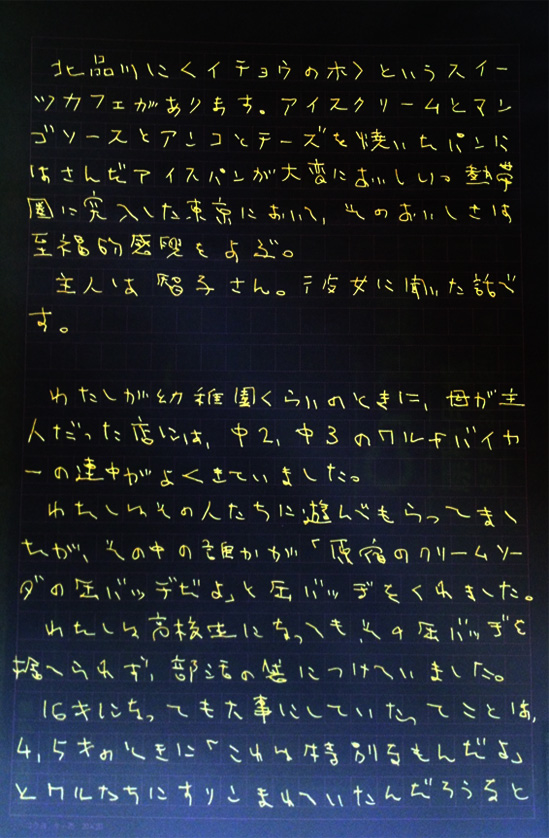 北品川にくイチョウのホ〉というスイー
ツカフェがあります。アイスクリームとマン
ゴソースとアンコとチーズを焼いたパンに
はさんだアイスパンが大変においしい。熱帯
圏に突入した東京において、そのおいしさは
至福的感覚をよぶ。
主人は智子さん。彼女に聞いた話で
す。
わたしが幼稚園くらいのときに、母が主
人だった店には、中2、中3のワルチバイカ
ーの連中がよくきていました。
わたしはその人たちに遊んでもらってまし
たが、その中の誰かが「原宿のクリームソー
ダの缶バッヂだよ」と缶バッヂをくれました。
わたしは高校生になっても、その缶バッヂを
捨てられず、部活の鞄につけていました。
16才になっても大事にしていたってことは、
4,5才のときに「これは特別なもんだよ」
とワルたちにすりこまれていたんだろうなと